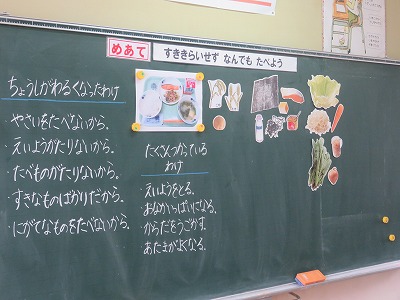 めあて
すききらいせず なんでも たべよう
ちょうしがわるくなったわけ
・やさいをたべないから。
・えいようがたりないから。
・たべものがたりないから。
・すきなものばかりだから。
・にがてなものをたべないから。
たくさんつかっている
わけ
・えいようをとる。
・おなかいっぱいになる。
・からだをうごかす。
・あたまがよくなる。